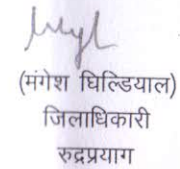 (मंगेश घिल्डियाल)
जिलाधिकारी
रुद्रप्रयाग